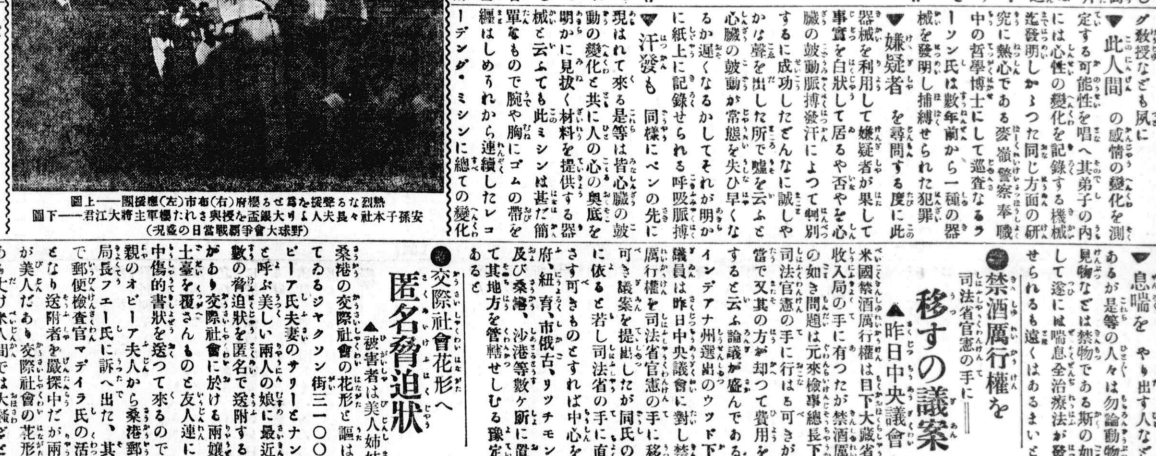 グ教授なども夙に
▼此人間 の感情の變化を測
定する可能性を唱へ其弟子の内
には心性の變化を記錄する機械
迄發明しかゝつた同じ方面の研
究に熱心である麥嶺警察奉職
中の哲學博士にして巡査なるラ
ーソン氏は數年前から一種の器
械を發明し捕縛せられた犯罪
▼嫌疑者 を尋問する度に此
器械を利用して嫌疑者が果して
事實を白狀して居るや否やを心
臟の鼓動脈搏發汗によつて判別
するに成功したどんなに誠しや
かな聲を出した所で噓を云ふと
心臟の鼓動が常態を失ひ早くな
るか遲くなるかしてそれが明か
に紙上に記錄せられる呼吸脈搏
▼汗發も 同樣にペンの先に
現はれて來る是等は皆心臟の鼓
動の變化と共に人の心の奧底を
明かに見拔く材料を提供する器
械と云ふても此ミシンは甚だ簡
單なもので腕や胸にゴムの帶を
纒はしめりれから連續したレコ
ーデング・ミシンに總ての變化
熱烈なる聲援を爲せる櫻府(右)布市(左)應援團――上圖
安孫子本社々長夫人より大銀盃を授與された櫻軍主將大江君――下圖
(野球大會爭覇戰當日の盛況)
▼息喘を やり出す人など
あるが是等の人々は勿論動物
見物などは禁物である斯の如
して遂には喘息全治療法が發
せられるも遠くはあるまいと
禁酒厲行權を
司法省官憲の手に
移すの議案
▲昨日中央議會
米國禁酒厲行權は目下大藏省
收入局の手に有つたが禁酒厲
の如き問題は元來檢事總長下
司法官憲の手に行はる可きが
當で又其の方が却つて費用を
すると云ふ論議が盛んである
インデアナ州選出のウツド下
議員は昨日中央議會に對し禁
厲行權を司法省官憲の手に移
可き議案を提出したが同氏の
に依ると若し司法省の手に直
さす可きものとすれば中心を
府、紐育、市俄古、リツチモン
及び桑港、沙港等數ケ所に置
て其地方を管轄せしむる豫定
あると
交際社會花形へ
匿名脅迫狀
▲被害者は美人姉妹
桑港の交際社會の花形と謳は
てゐるジヤクソン街三一〇〇
ピーア氏夫妻のサリーとナン
と呼ぶ美しい兩人の娘に最近
數の脅迫狀を匿名で送附する
があり交際社會に於ける兩孃
土臺を覆さんものと友人連に
中傷的書狀を送つて來るので
親のオピーア夫人から桑港郵
局長フエー氏に訴へ出た、其
で郵便檢査官マデイラ氏の活
となり送附者を嚴探中だが兩
が美人だあり交際社會の花形